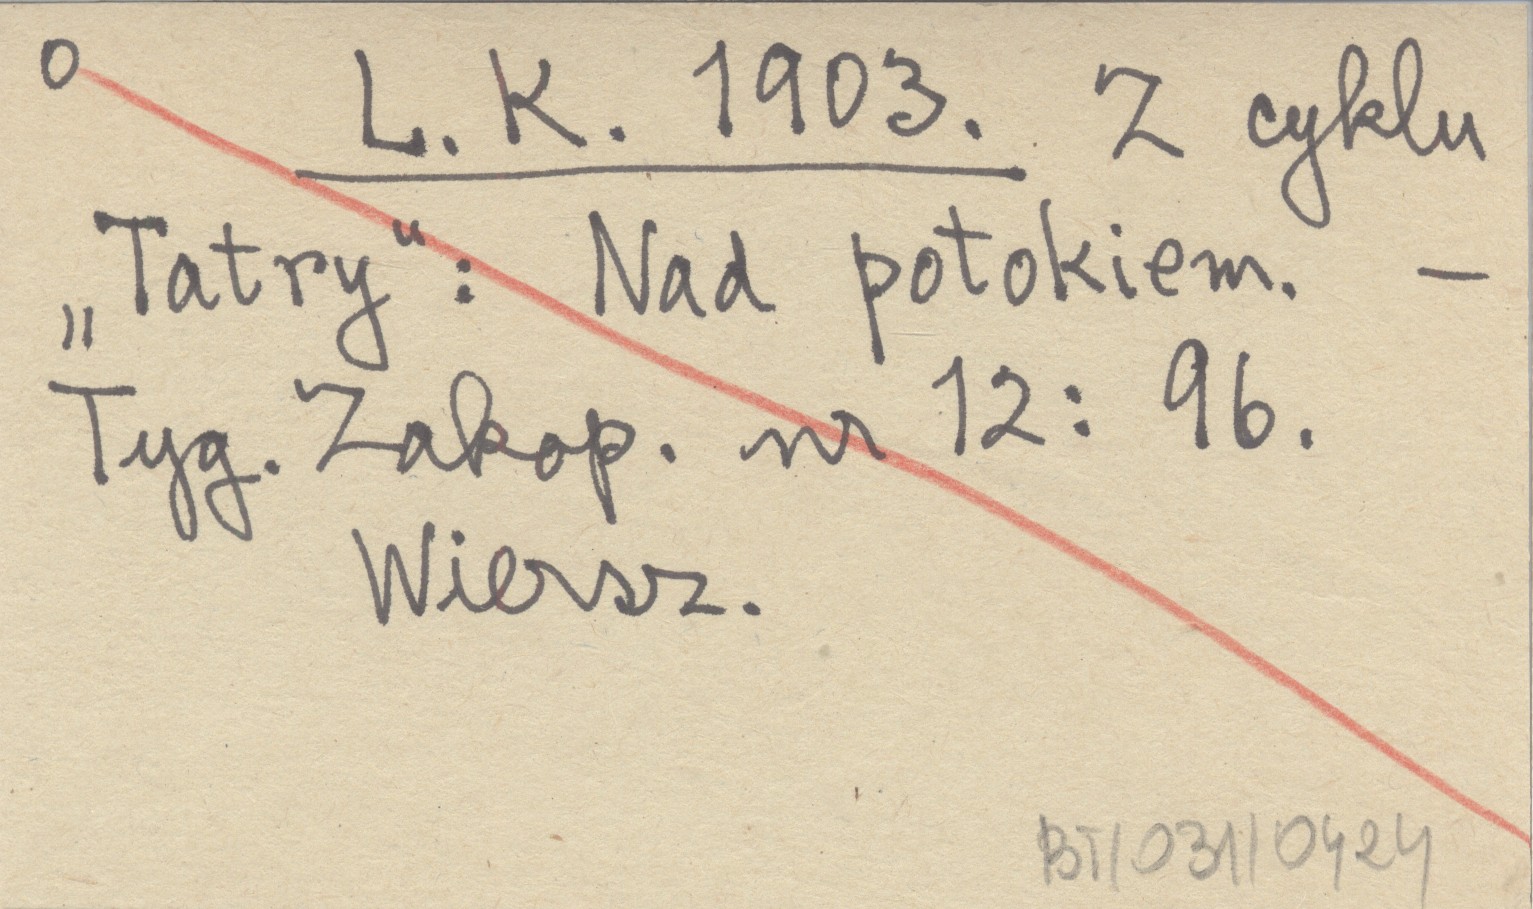 0 L. K. 1903. Z cyklu
„Tatry“: Nad potokiem. —
Tyg. Zakop. nr 12: 96.
Wiersz.
BT/031/0424